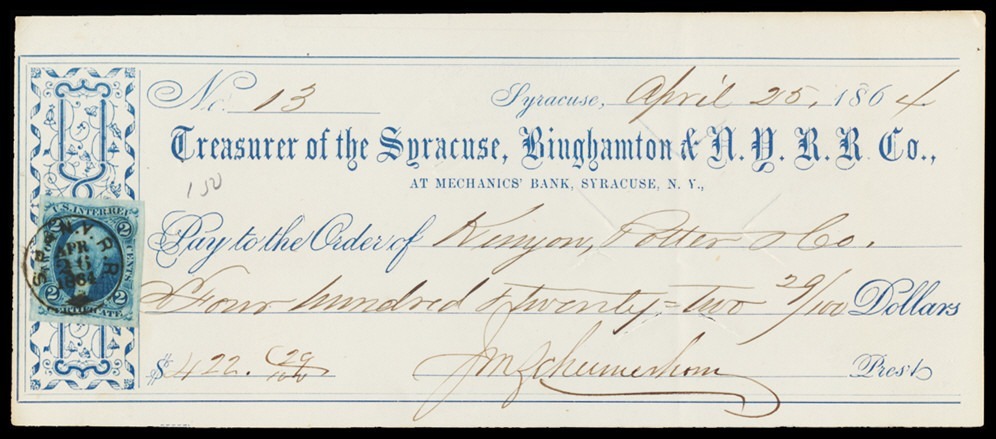 No. 13 Syracuse, April 25, 1864
Treasurer of the Syracuse, Binghamton & N. Y. R. R. Co.,
AT MECHANICS' BANK, SYRACUSE, N. Y.,
1 50
Pay to the Order of Kenyon, Potter & Co.
Four hundred & twenty=two 29/100 Dollars
$ 422. 29/100 Prest
U.S. INTER. REV.
2 2
CENTS
CERTIFICATE
2 2
N.Y.R.R.
APR
26
1864